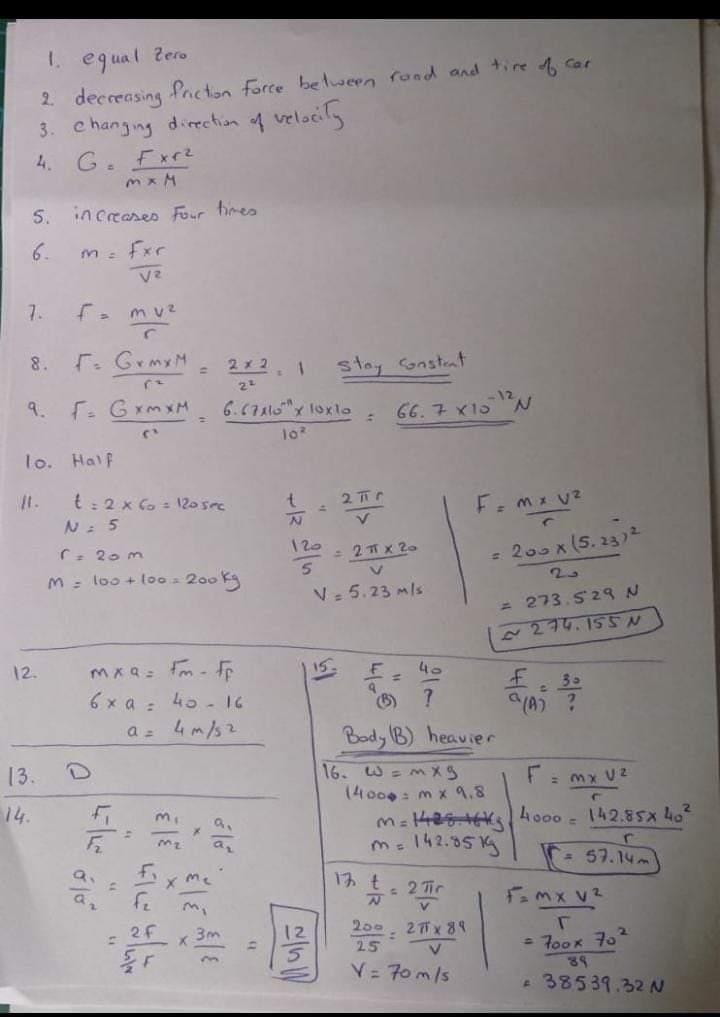 1. equal Zero
2. decreasing friction force between road and tire of car
3. changing direction of velocity
4. G = F×r² / m×M
5. increases Four times
6. m = F×r / V²
7. F = mv² / r
8. F = G×m×M / r² = 2×2 / 2² = 1 Stay Constant
9. F = G×m×M / r² = 6.67×10⁻¹¹×10×10 / 10² = 66.7×10⁻¹²N
10. Half
11. t = 2×60 = 120 sec
N = 5
r = 20 m
m = 100 + 100 = 200 kg
t/N = 2πr / V
120/5 = 2π×20 / V
V = 5.23 m/s
F = m×V² / r
= 200×(5.23)² / 20
= 273.529 N
≈ 274.155 N
12. m×a = Fm - Ff
6×a = 40 - 16
a = 4 m/s2
13. D
14. F₁/F₂ = m₁/m₂ × a₁/a₂
a₁/a₂ = F₁/F₂ × m₂/m₁
= 2F / 5/2 F × 3m/m = 12/5
15. F/a (B) = 40/?
F/a (A) = 30/?
Body(B) heavier
16. W = m×g
1400 = m×9.8
m = 142.85 kg
F = m×V² / r
4000 = 142.85×40² / r
r = 57.14m
17. t/N = 2πr / V
200/25 = 2π×89 / V
V = 70 m/s
F = m×V² / r
= 700×70² / 89
= 38539.32 N